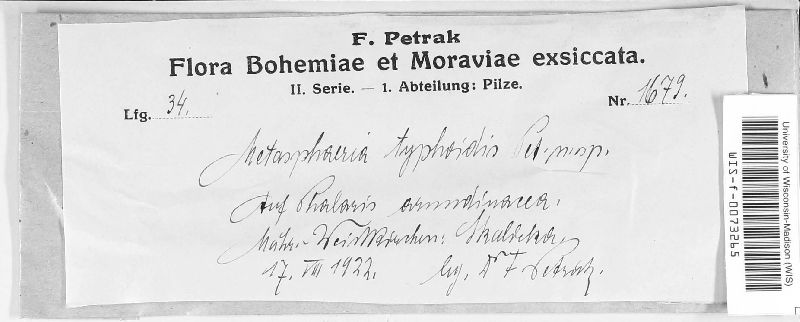 F. Petrak
Flora Bohemiae et Moraviae exsiccata.
II. Serie. — 1. Abteilung: Pilze.
Lfg. 34. Nr. 1679.
Metasphaeria typhoidis Pet. n. sp.
Auf Phalaris arundinacea.
Mähr.-Weisskirchen: Skalička,
17. VII 1922. leg. Dr F. Petrak.
University of Wisconsin-Madison (WIS)
WIS-f-0073265